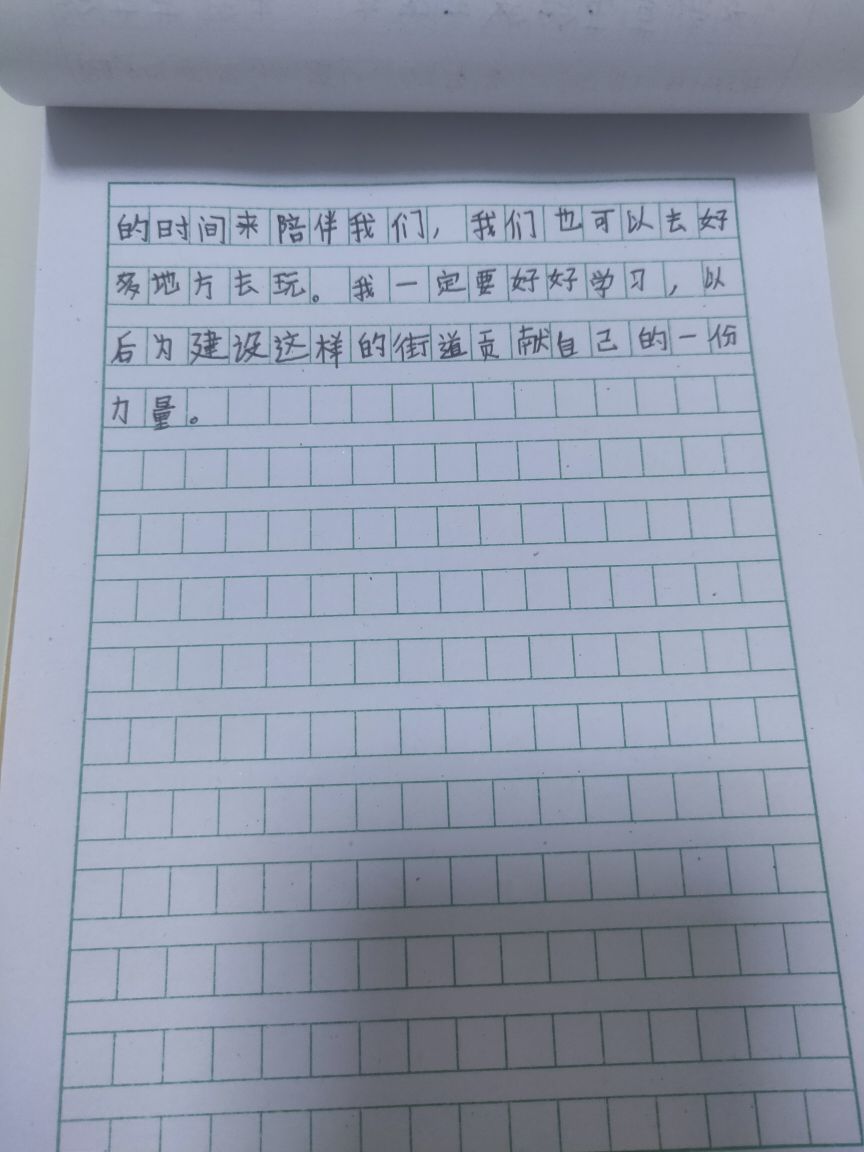 的时间来陪伴我们，我们也可以去好
多地方去玩。我一定要好好学习，以
后为建设这样的街道贡献自己的一份
力量。